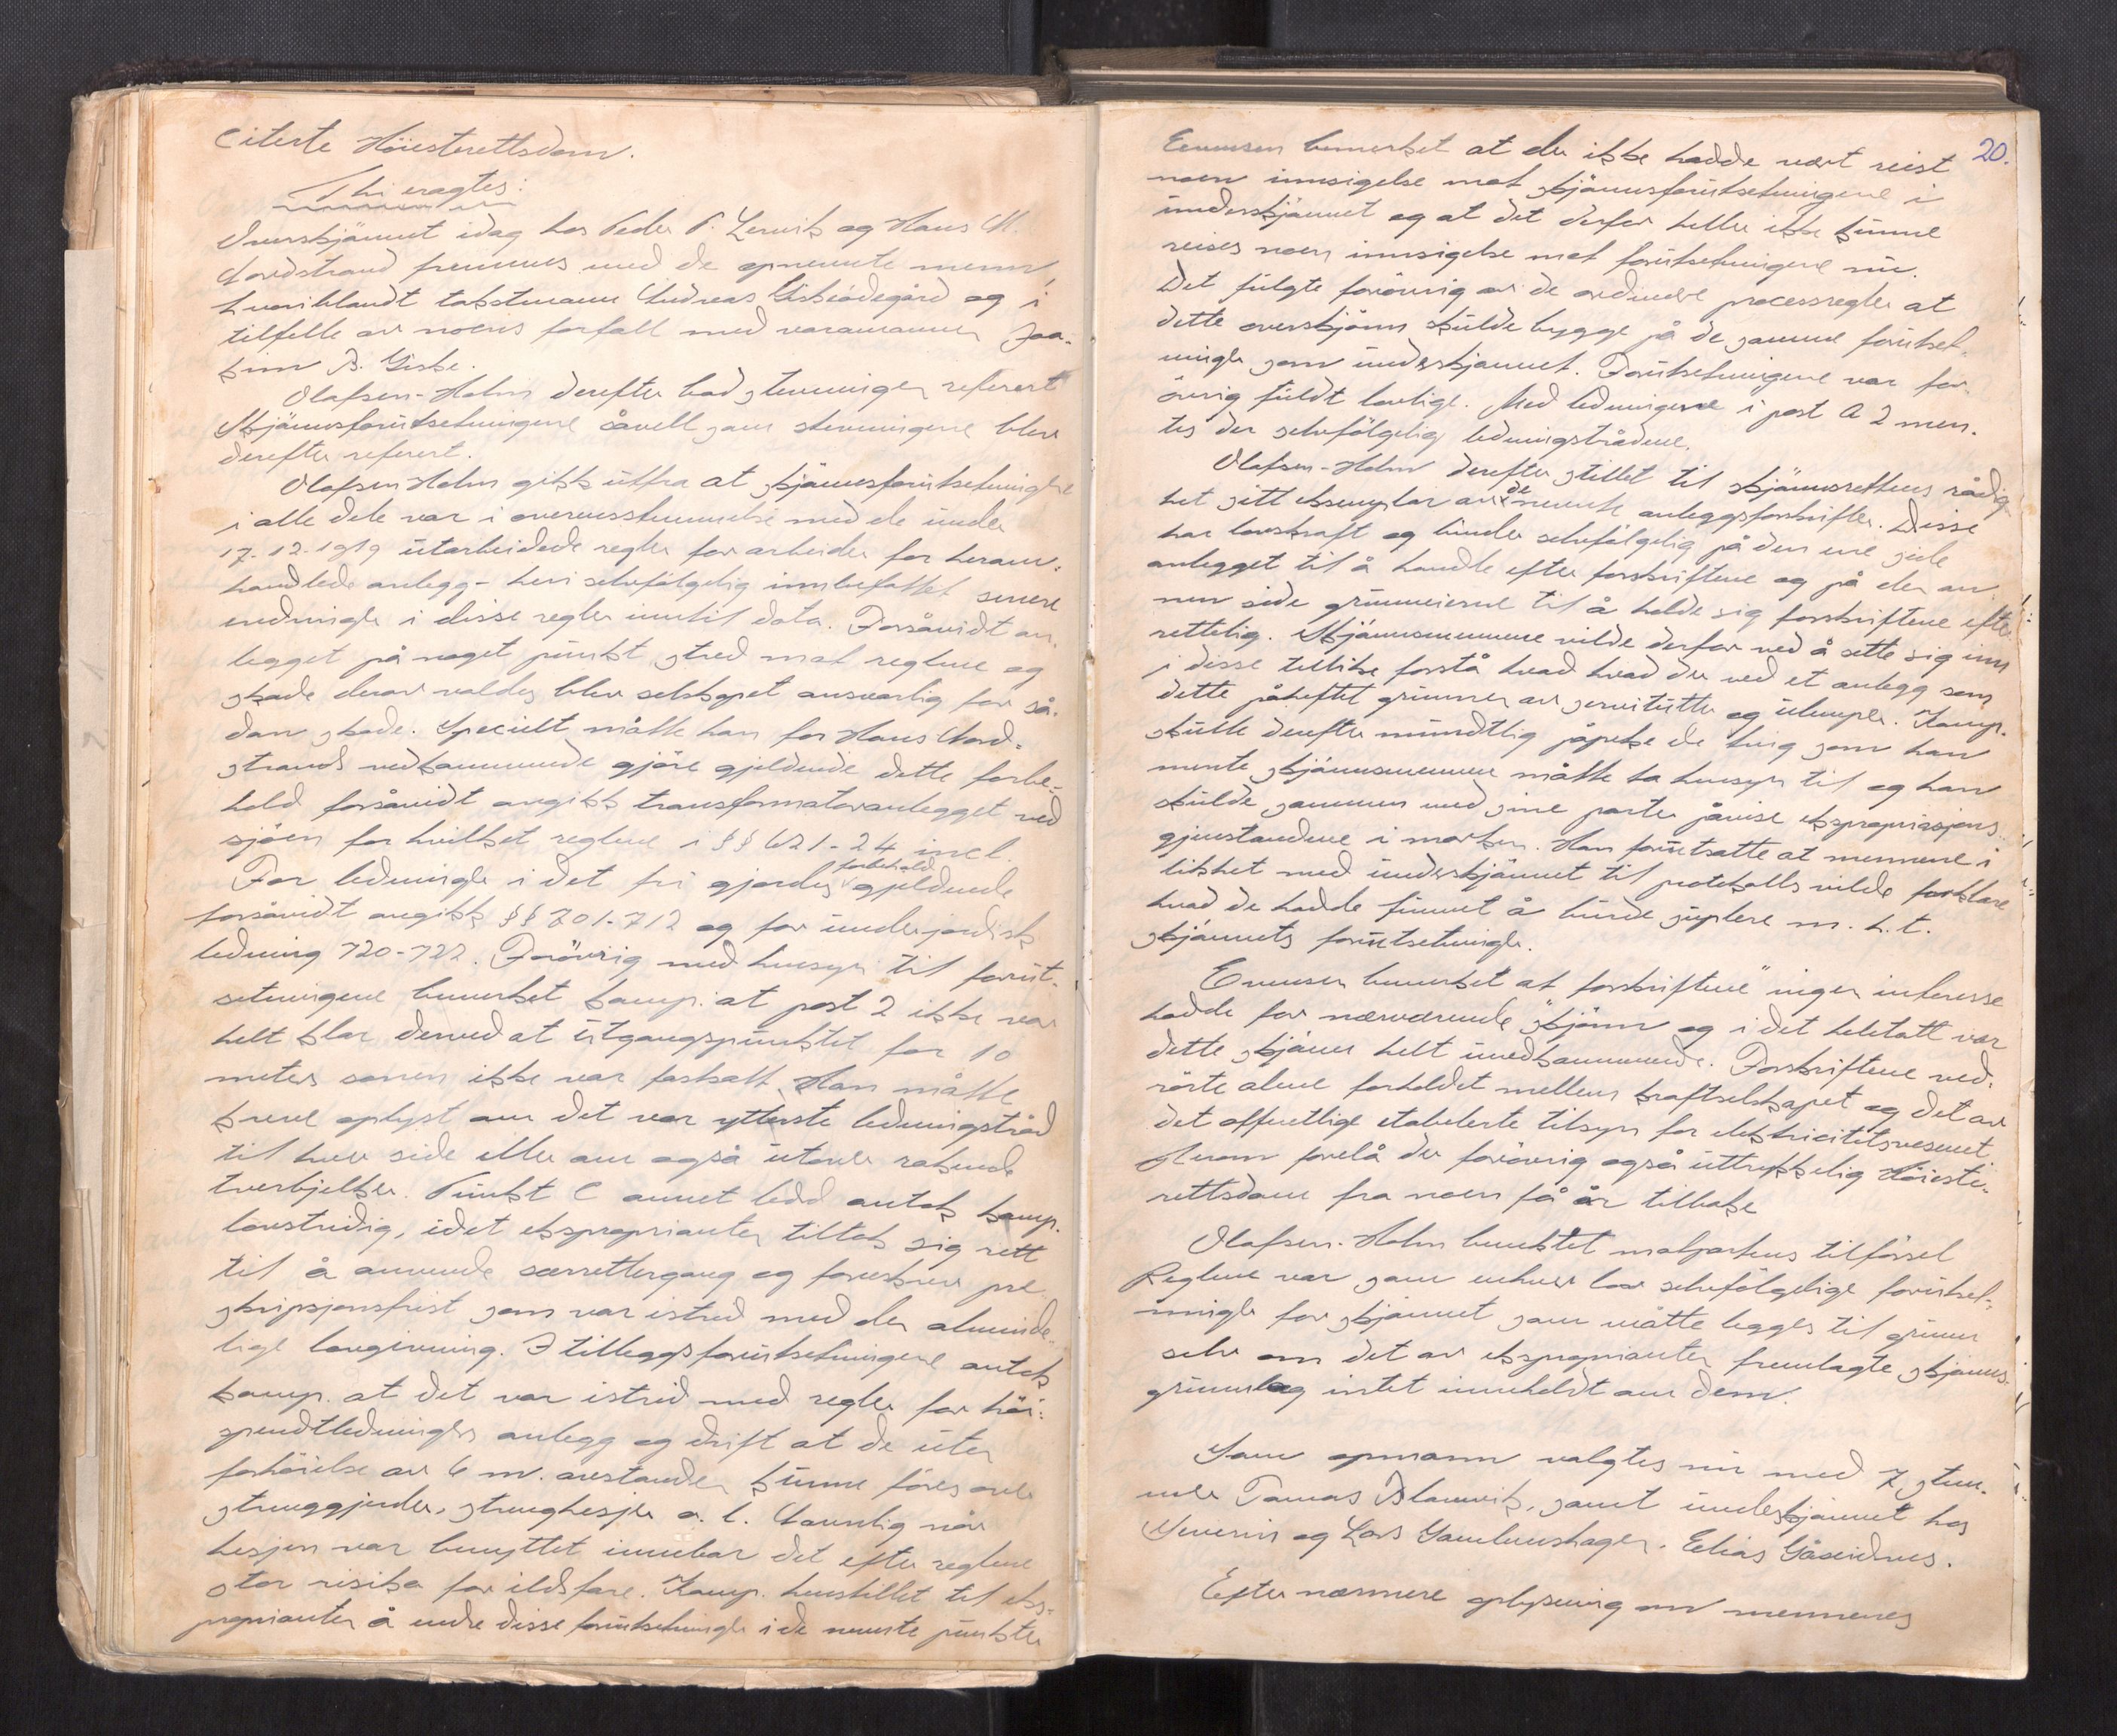 citerte Höiesterettsdom.
Thi eragtes:
Overskjönnet idag hos Peder P. Lervik og Hans M.
Nordstrand fremmes med de opnevnte menn
hvoriblandt takstmann Andreas Giskeödegård og i
tilfelle av noens forfall med varamannen Joa-
kim B. Giske.
Olafsen-Holm derefter bad stevningen referert
Skjönsforutsetningene såvell som stevningene blev
derefter referert.
Olafsen Holm gikk utfra at skjönsforutsetningene
i alle dele var i overensstemmelse med de under
17-12-1919 utarbeidede regler for arbeider for herom-
handlede anlegg - heri selvfölgelig innbefattet senere
endringer i disse regler inntil dato. Forsåvidt an-
legget på noget punkt stred mot reglene og
skade derav voldtes blev selskapet ansvarlig for så-
dan skade. Specielt måtte han for Hans Nord-
strands vedkommende gjöre gjeldende dette forbe-
hold forsåvidt angikk transformatoranlegget ved
sjöen for hvilket reglene i §§ 621-24 incl.
For ledninger i det fri gjordes forbehold gjeldende
forsåvidt angikk §§ 701-712 og for underjordisk
ledning 720-722. Forövrig med hensyn til forut-
setningene bemerket komp. at post 2 ikke var
helt klar derved at utgangspunktet for 10
meters sonen ikke var fastsatt. Han måtte
kreve oplyst om det var ytterste ledningstråd
til hver side eller om også utover rakende
tverbjelker. Punkt C annet ledd antok komp.
lovstridig, idet eksproprianten tiltok sig rett
til å anvende særrettergang og foreskrev pre-
skripsjonsfrist som var istrid med den alminde-
lige lovgivning. I tilleggsforutsetningene antok
komp. at det var istrid med regler for höi-
spendtledningers anlegg og drift at de uten
forhöielse av 6 m. avstanden kunne föres over
strenggjerder, strenghesjer o. l. Navnlig når
hesjen var benyttet innebar det efter reglene
stor risiko for ildsfare. Komp. henstillet til eks-
propianten å endre disse forutsetninger i de nevnte punkter
20.
Emmsen bemerket at der ikke hadde vært reist
noen innsigelse mot skjönnsforutsetningene i
underskjönnet og at det derfor heller ikke kunne
reises noen innsigelse mot forutsetningene nu.
Det fulgte forövrig av de ordinære processregler at
dette overskjönn skulde bygge på de samme forutset-
ninger som underskjönnet. Forutsetningene var for-
övrig fuldt lovlige. Med ledningene i post A 2 men-
tes der selvfölgelig ledningstrådene.
Olafsen-Holm derefter stillet til skjönnsrettens rådig-
het sitt eksemplar av de nevnte anleggsforskrifter. Disse
har lovskraft og binder selvfölgelig på den ene side
anlegget til å handle efter forskriftene og på den an-
nen side grunneierne til å holde sig forskriftene efter-
rettelig. Skjönnsmennene vilde derfor ved å sette sig inn
i disse tillike forstå hvad hvad der ved et anlegg som
dette påheftet grunnen av servitutter og ulemper. Komp.
skulle derefter mundtlig påpeke de ting som han
mente skjönnsmennene måtte ta hensyn til og han
skulde sammen med sine parter påvise ekspropriasjons-
gjenstandene i marken. Han forutsatte at mennene i
likhet med underskjönnet til protokolls vilde forklare
hvad de hadde funnet å burde suplere m. h. t.
skjönnets forutsetninger.
Emmsen bemerket at "forskriftene" ingen interesse
hadde for nærværende skjönn og i det heletatt var
dette skjönn helt uvedkommende. Forskriftene ved-
rörte alene forholdet mellem kraftselskapet og det av
det offentlige etablerte tilsyn for elektricitetsvesenet.
Herom forelå der forövrig også uttrykkelig Höieste-
rettsdom fra noen få år tilbake
Olafsen-Holm benektet motpartens tilförsel
Reglene var som enhver lov selvfölgelige forutset-
ninger for skjönnet som måtte legges til grunn
selv om det av ekspropianten fremlagte skjönns-
grunnlag intet inneholdt om dem.
Som opmann valgtes nu med 7 stem-
mer Tomas Blomvik, samt underskjönnet hos
og Lars Elias Gåseidnes.
Efter nærmere oplysning om mennenes